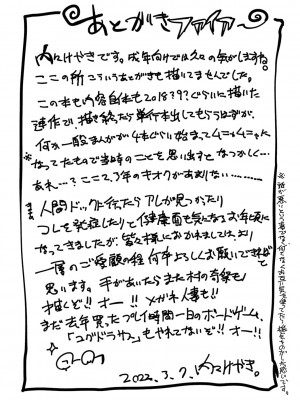 あとがきファイアー
内々けやきです。成年向けでは久々の気がしますね。
ここの所こういうあとがきも描いてませんでした。
この本も内容自体も2018?9?ぐらいに描いた
連作で、描き終ったら単行本出してもらうはずが、
何か一般まんがが4本ぐらい始まってムニャムニャに
なってたもので当時のことを思い出すとなつかしく…
あれ…?ここ2、3年のキオクがあまりない………
まぁ人間ドックに行ったらアレが見つかったり
コレを発症したりと健康面も気になるお年頃に
なってきましたが、皆々様におかれましては、より
一層のご愛顧の程 何卒よろしくお願いできればと
思います。手があいたらまた村の奇祭も
描くど!!オー!!メガネ人妻も!!
まだ去年買ったプレイ時間一日のボードゲーム、
「ユグドラサス」もやれてないぞ!!オー!!
2022.3.7. 内々けやき。